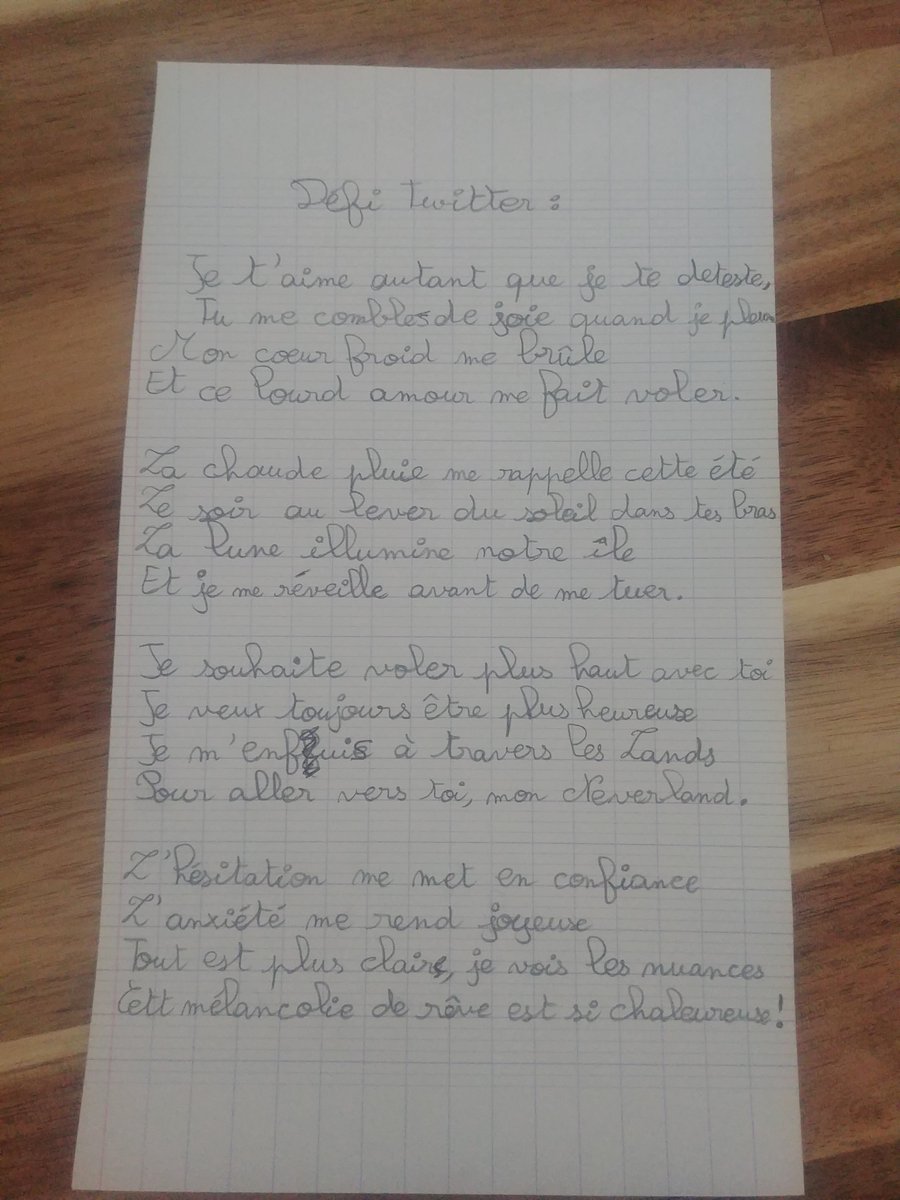 Défi Twitter :
Je t'aime autant que je te deteste,
Tu me combles de joie quand je pleure
Mon coeur froid me brûle
Et ce lourd amour me fait voler.
La chaude pluie me rappelle cette été
Le soir au lever du soleil dans tes bras
La lune illumine notre île
Et je me réveille avant de me tuer.
Je souhaite voler plus haut avec toi
Je veux toujours être plus heureuse
Je m'enfuis à travers les Lands
Pour aller vers toi, mon Neverland.
L'hésitation me met en confiance
L'anxiété me rend joyeuse
Tout est plus clair, je vois les nuances
Cett mélancolie de rêve est si chaleureuse !